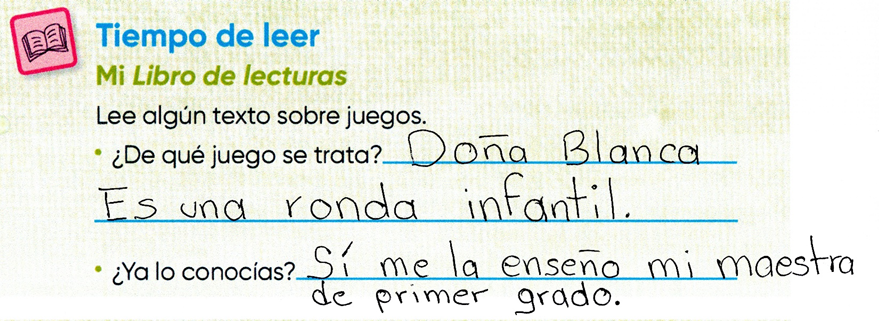 Tiempo de leer
Mi Libro de lecturas
Lee algún texto sobre juegos.
• ¿De qué juego se trata? Doña Blanca
Es una ronda infantil.
• ¿Ya lo conocías? Sí me la enseño mi maestra
de primer grado.